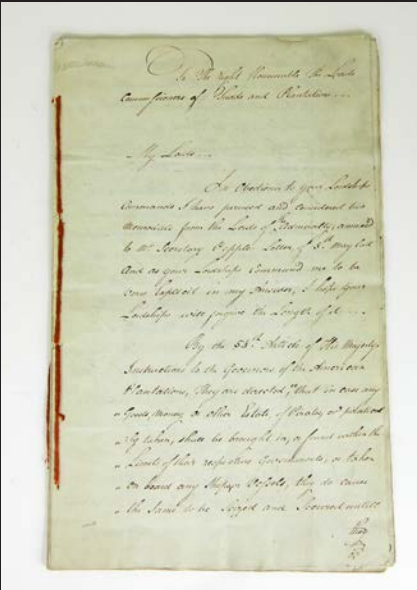 To The right Honourable the Lords
Commissioners of Trade and Plantations
My Lords
In Obedience to your Lordships
Commands I have perused and considered two
Memorials from the Lords of Admiralty, annexed
to Mr. Secretary Popples Letter of 5th May last
And as your Lordships Command me to be
very Explicit in my Answer, I hope your
Lordships will forgive the Length of it
By the 54th Article of His Majestys
Instructions to the Governors of the American
Plantations, They are directed, that in case any
Goods, Money or other Estate, of Pirates, or piratical
ly taken, shall be brought in, or found within the
Limits of their respective Governments, or taken
on board any Ships or Vessels, they do cause
the same to be Seized and Secured untill
they